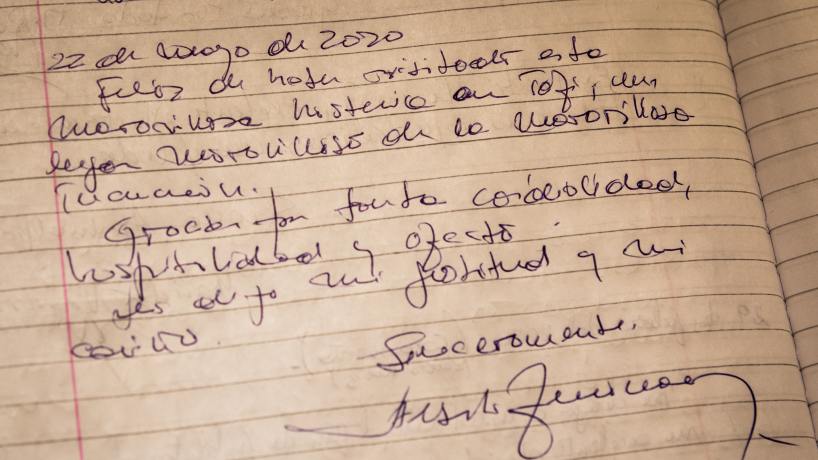 22 de mayo de 2020
Feliz de haber visitado esta
maravillosa historia en Tafí, un
lugar maravilloso de la maravillosa
Tucumán.
Gracias por tanta cordialidad,
hospitalidad y afecto.
Les dejo mi gratitud y mi
cariño.
Sinceramente.